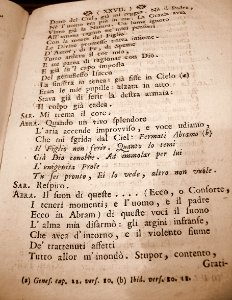 ( XXVII. )
Dono del Ciel, già mi rapisce. Nè il Padre,
Nè l'uomo era più in me. La Grazia avea
Vinta già la Natura. Un lume ignoto
All' anima rapita
Con la morte del figlio
Le Divine promesse unite insieme.
D'Amor, di Fe, di Speme
Tutto ardeva il cor mio,
E mi parea di ragionar con Dio.
E già sul capo imposta
Del genuflesso Isacco
La sinistra io tenea: già fisse in Cielo (a)
Eran le mie pupille: alzata in atto
Stava già di ferir la destra armata:
Il colpo già cadea.
SAR. Mi trema il core.
ABRA. Quando un vivo splendore
L'aria accende improvviso, e voce udiamo,
Che mi sgrida dal Ciel: Fermati Abramo (b)
Il Figlio non ferir. Quanto lo temi
Già Dio conobbe. Ad immolar per lui
L'unigenita Prole
Tu sei pronto, Ei lo vede, altro non vuole.
SAR. Respiro.
ABRA. Il suon di queste .... (Ecco, o Consorte,
I teneri momenti; e l'uomo, e il padre
Ecco in Abram) di queste voci il suono
L'alma mia disarmò: gli argini infranse,
Che avea d'intorno, e il violento fiume
De' trattenuti affetti
Tutto allor m'inondò. Stupor, contento,
Grati-
(a) Genes. cap. 22. vers. 10. (b) Ibid. vers. 10. 12.